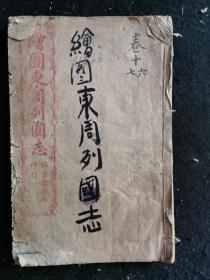 卷十六
七
繪圖東周列國志
繪圖東周列國志